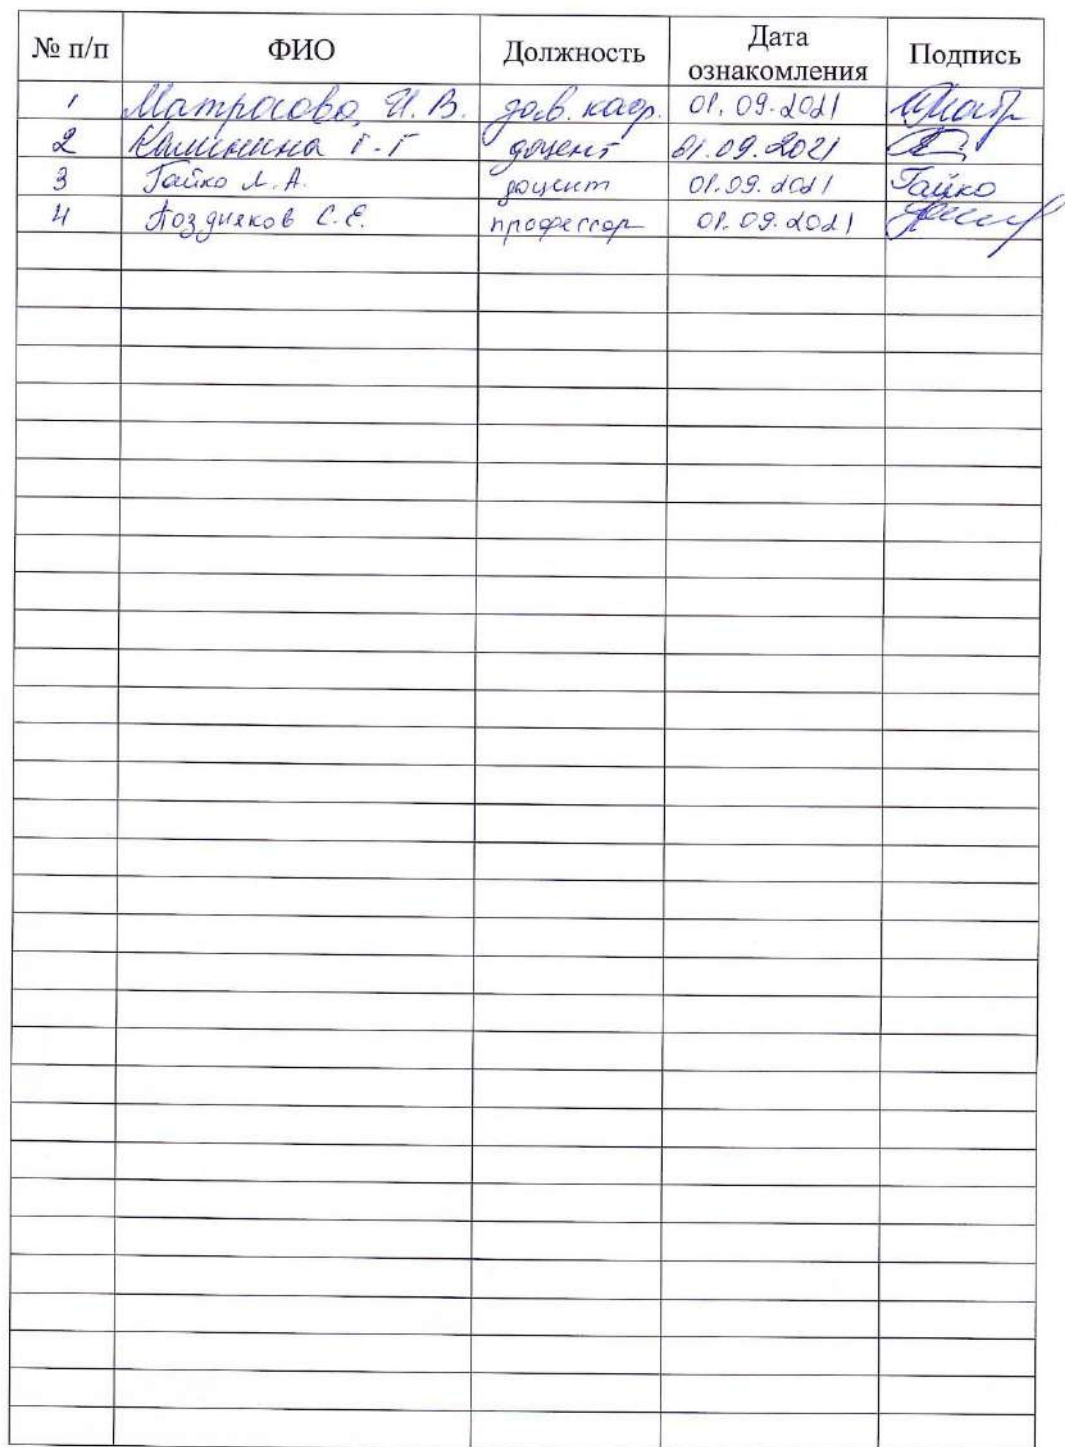 № п/п ФИО Должность Дата ознакомления Подпись
1 Матросова И. В. зав. каф. 01.09.2021
2 Калинина Г. Г доцент 01.09.2021
3 Гайко Л. А. доцент 01.09.2021 Гайко
4 Поздняков С. Е. профессор 01.09.2021